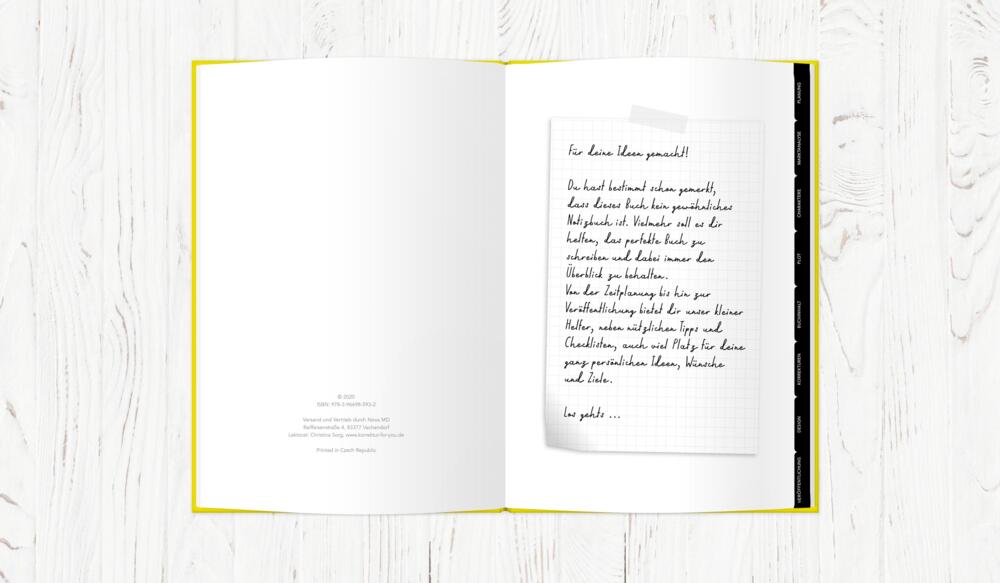 © 2020
ISBN: 978-3-96698-593-2
Versand und Vertrieb durch Nova MD
Raiffeisenstraße 4, 83377 Vachendorf
Lektorat: Christina Sorg, www.korrektur-for-you.de
Printed in Czech Republic
Für deine Ideen gemacht!
Du hast bestimmt schon gemerkt,
dass dieses Buch kein gewöhnliches
Notizbuch ist. Vielmehr soll es dir
helfen, das perfekte Buch zu
schreiben und dabei immer den
Überblick zu behalten.
Von der Zeitplanung bis hin zur
Veröffentlichung bietet dir unser kleiner
Helfer, neben nützlichen Tipps und
Checklisten, auch viel Platz für deine
ganz persönlichen Ideen, Wünsche
und Ziele.
Los gehts ...
PLANUNG
MARKTANALYSE
CHARAKTERE
PLOT
BUCHINHALT
KORREKTUREN
DESIGN
VERÖFFENTLICHUNG